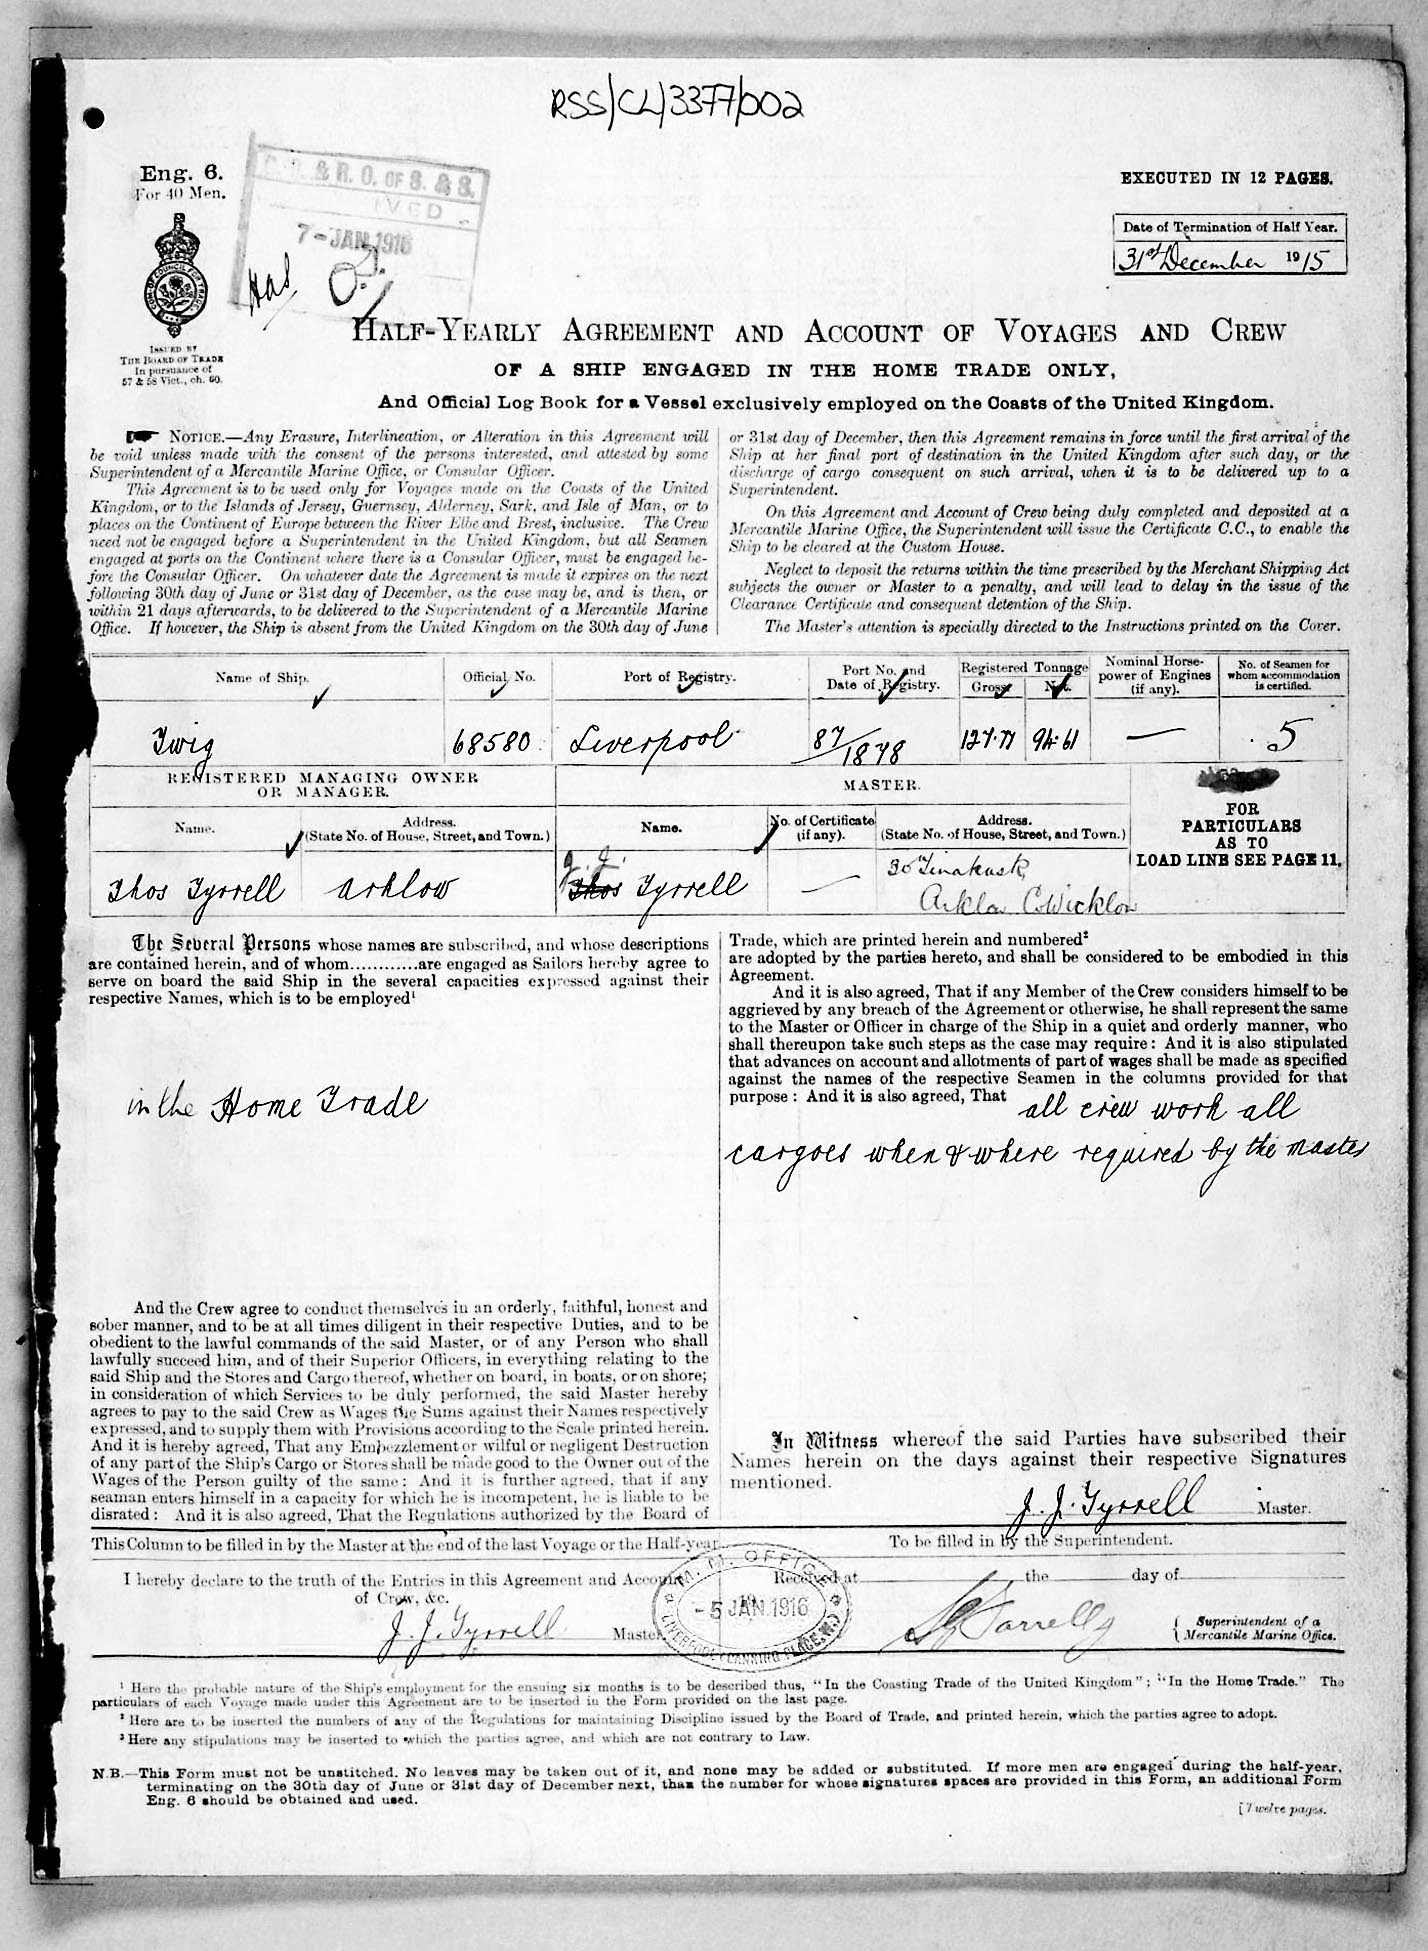 RSS/CL/3377/002
Eng. 6.
For 40 Men.
& R. O. OF S. & S.
IVED
7-JAN 1916
Has
EXECUTED IN 12 PAGES.
Date of Termination of Half Year.
31st December 1915
ISSUED BY
THE BOARD OF TRADE
In pursuance of
57 & 58 Vict., ch. 60.
HALF-YEARLY AGREEMENT AND ACCOUNT OF VOYAGES AND CREW
OF A SHIP ENGAGED IN THE HOME TRADE ONLY,
And Official Log Book for a Vessel exclusively employed on the Coasts of the United Kingdom.
NOTICE.—Any Erasure, Interlineation, or Alteration in this Agreement will
be void unless made with the consent of the persons interested, and attested by some
Superintendent of a Mercantile Marine Office, or Consular Officer.
This Agreement is to be used only for Voyages made on the Coasts of the United
Kingdom, or to the Islands of Jersey, Guernsey, Alderney, Sark, and Isle of Man, or to
places on the Continent of Europe between the River Elbe and Brest, inclusive. The Crew
need not be engaged before a Superintendent in the United Kingdom, but all Seamen
engaged at ports on the Continent where there is a Consular Officer, must be engaged be-
fore the Consular Officer. On whatever date the Agreement is made it expires on the next
following 30th day of June or 31st day of December, as the case may be, and is then, or
within 21 days afterwards, to be delivered to the Superintendent of a Mercantile Marine
Office. If however, the Ship is absent from the United Kingdom on the 30th day of June
or 31st day of December, then this Agreement remains in force until the first arrival of the
Ship at her final port of destination in the United Kingdom after such day, or the
discharge of cargo consequent on such arrival, when it is to be delivered up to a
Superintendent.
On this Agreement and Account of Crew being duly completed and deposited at a
Mercantile Marine Office, the Superintendent will issue the Certificate C.C., to enable the
Ship to be cleared at the Custom House.
Neglect to deposit the returns within the time prescribed by the Merchant Shipping Act
subjects the owner or Master to a penalty, and will lead to delay in the issue of the
Clearance Certificate and consequent detention of the Ship.
The Master's attention is specially directed to the Instructions printed on the Cover.
Name of Ship. Official No. Port of Registry. Port No. and Date of Registry. Registered Tonnage Gross Net. Nominal Horse-power of Engines (if any). No. of Seamen for whom accommodation is certified.
Twig 68580 Liverpool 87/1878 127.77 94.61 — 5
REGISTERED MANAGING OWNER
OR MANAGER.
MASTER.
Name. Address. (State No. of House, Street, and Town.) Name. No. of Certificate (if any). Address. (State No. of House, Street, and Town.)
FOR
PARTICULARS
AS TO
LOAD LINE SEE PAGE 11.
Thos Tyrrell Arklow J. J. Thos Tyrrell —
Arklow Co Wicklow
The Several Persons whose names are subscribed, and whose descriptions
are contained herein, and of whom............are engaged as Sailors hereby agree to
serve on board the said Ship in the several capacities expressed against their
respective Names, which is to be employed¹
in the Home Trade
And the Crew agree to conduct themselves in an orderly, faithful, honest and
sober manner, and to be at all times diligent in their respective Duties, and to be
obedient to the lawful commands of the said Master, or of any Person who shall
lawfully succeed him, and of their Superior Officers, in everything relating to the
said Ship and the Stores and Cargo thereof, whether on board, in boats, or on shore;
in consideration of which Services to be duly performed, the said Master hereby
agrees to pay to the said Crew as Wages the Sums against their Names respectively
expressed, and to supply them with Provisions according to the Scale printed herein.
And it is hereby agreed, That any Embezzlement or wilful or negligent Destruction
of any part of the Ship's Cargo or Stores shall be made good to the Owner out of the
Wages of the Person guilty of the same: And it is further agreed, that if any
seaman enters himself in a capacity for which he is incompetent, he is liable to be
disrated: And it is also agreed, That the Regulations authorized by the Board of
Trade, which are printed herein and numbered²
are adopted by the parties hereto, and shall be considered to be embodied in this
Agreement.
And it is also agreed, That if any Member of the Crew considers himself to be
aggrieved by any breach of the Agreement or otherwise, he shall represent the same
to the Master or Officer in charge of the Ship in a quiet and orderly manner, who
shall thereupon take such steps as the case may require: And it is also stipulated
that advances on account and allotments of part of wages shall be made as specified
against the names of the respective Seamen in the columns provided for that
purpose: And it is also agreed, That all crew work all
cargoes when & where required by the master
In Witness whereof the said Parties have subscribed their
Names herein on the days against their respective Signatures
mentioned.
J. J. Tyrrell Master.
This Column to be filled in by the Master at the end of the last Voyage or the Half-year.
I hereby declare to the truth of the Entries in this Agreement and Account
of Crew, &c.
J. J. Tyrrell Master
M. M. OFFICE
-5 JAN. 1916
LIVERPOOL CANNING PLACE
To be filled in by the Superintendent.
Received at the day of
Superintendent of a
Mercantile Marine Office.
¹ Here the probable nature of the Ship's employment for the ensuing six months is to be described thus, "In the Coasting Trade of the United Kingdom"; "In the Home Trade." The
particulars of each Voyage made under this Agreement are to be inserted in the Form provided on the last page.
² Here are to be inserted the numbers of any of the Regulations for maintaining Discipline issued by the Board of Trade, and printed herein, which the parties agree to adopt.
³ Here any stipulations may be inserted to which the parties agree, and which are not contrary to Law.
N.B.—This Form must not be unstitched. No leaves may be taken out of it, and none may be added or substituted. If more men are engaged during the half-year,
terminating on the 30th day of June or 31st day of December next, than the number for whose signatures spaces are provided in this Form, an additional Form
Eng. 6 should be obtained and used.
[Twelve pages.